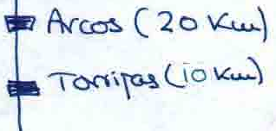 Arcos (20 Km)
Torrijas (10 Km)